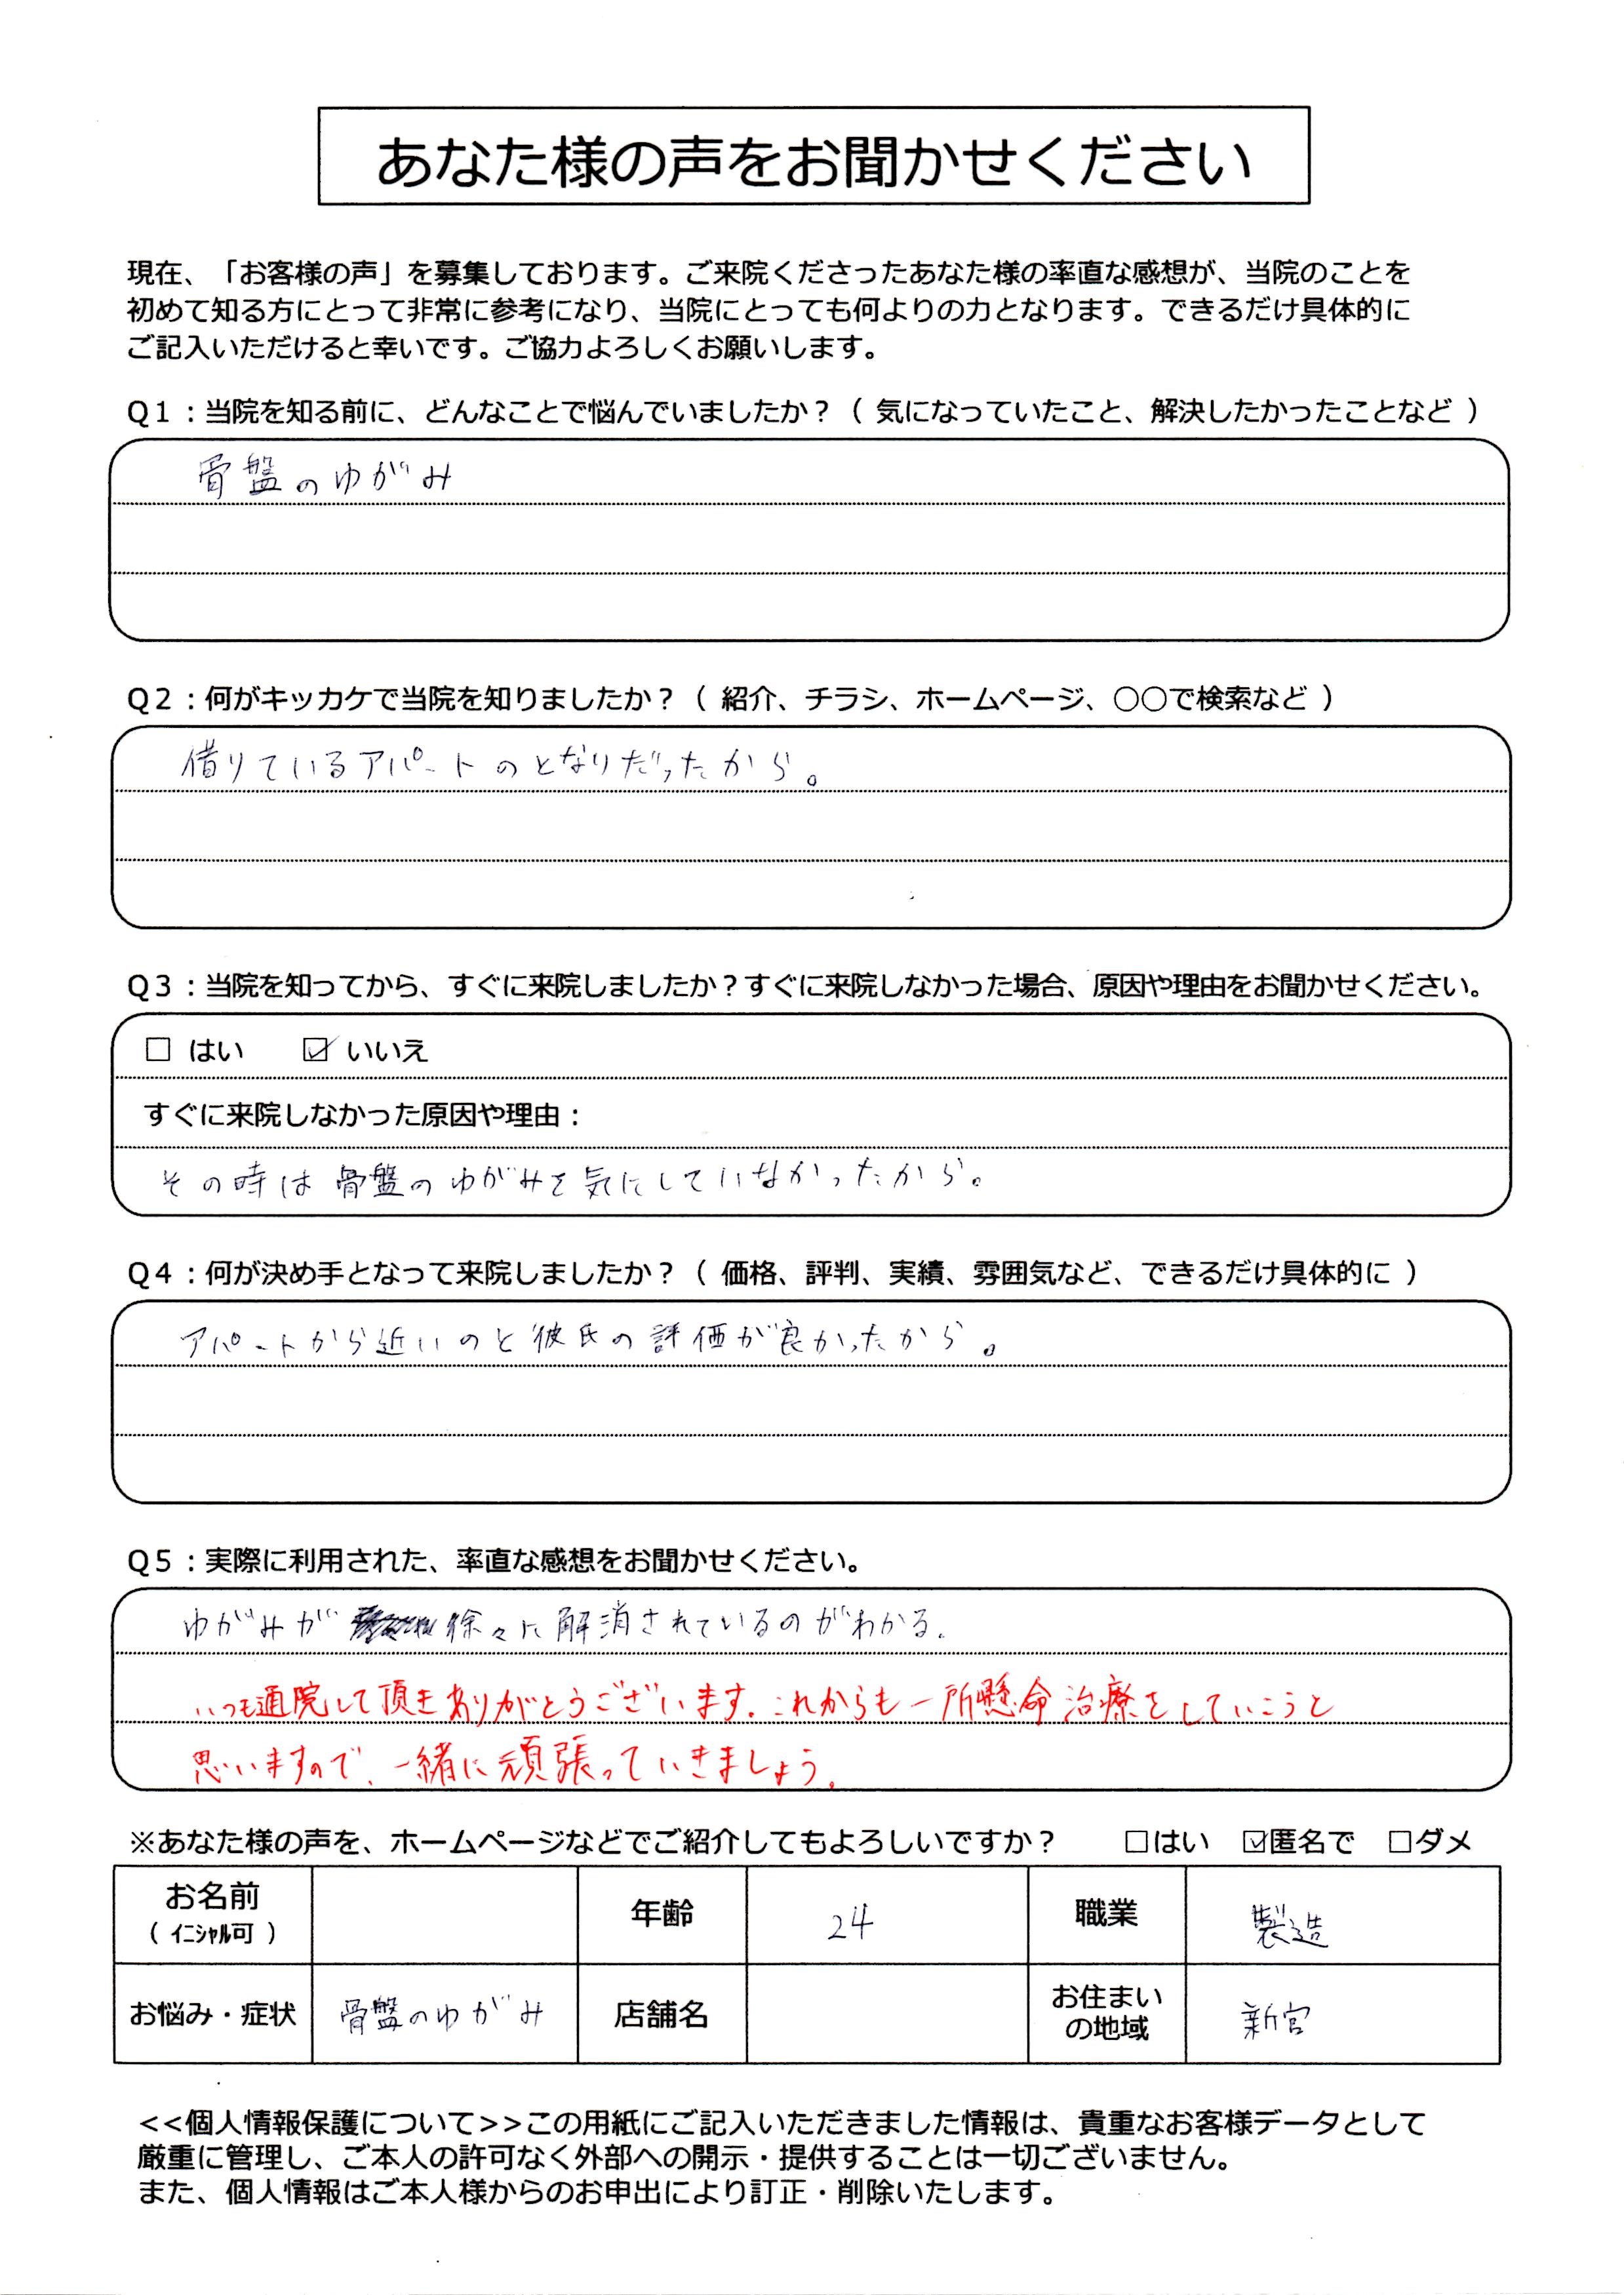 あなた様の声をお聞かせください
現在、「お客様の声」を募集しております。ご来院くださったあなた様の率直な感想が、当院のことを
初めて知る方にとって非常に参考になり、当院にとっても何よりの力となります。できるだけ具体的に
ご記入いただけると幸いです。ご協力よろしくお願いします。
Q1：当院を知る前に、どんなことで悩んでいましたか？（ 気になっていたこと、解決したかったことなど ）
骨盤のゆがみ
Q2：何がキッカケで当院を知りましたか？（ 紹介、チラシ、ホームページ、○○で検索など ）
借りているアパートのとなりだったから。
Q3：当院を知ってから、すぐに来院しましたか？すぐに来院しなかった場合、原因や理由をお聞かせください。
□ はい ☑ いいえ
すぐに来院しなかった原因や理由：
その時は骨盤のゆがみを気にしていなかったから。
Q4：何が決め手となって来院しましたか？（ 価格、評判、実績、雰囲気など、できるだけ具体的に ）
アパートから近いのと彼氏の評価が良かったから。
Q5：実際に利用された、率直な感想をお聞かせください。
ゆがみが徐々に解消されているのがわかる。
いつも通院して頂きありがとうございます。これからも一所懸命治療をしていこうと
思いますので、一緒に頑張っていきましょう。
※あなた様の声を、ホームページなどでご紹介してもよろしいですか？ □はい ☑匿名で □ダメ
お名前（ ｲﾆｼｬﾙ可 ） 年齢 24 職業 製造
お悩み・症状 骨盤のゆがみ 店舗名 お住まいの地域 新宮
<<個人情報保護について>>この用紙にご記入いただきました情報は、貴重なお客様データとして
厳重に管理し、ご本人の許可なく外部への開示・提供することは一切ございません。
また、個人情報はご本人様からのお申出により訂正・削除いたします。